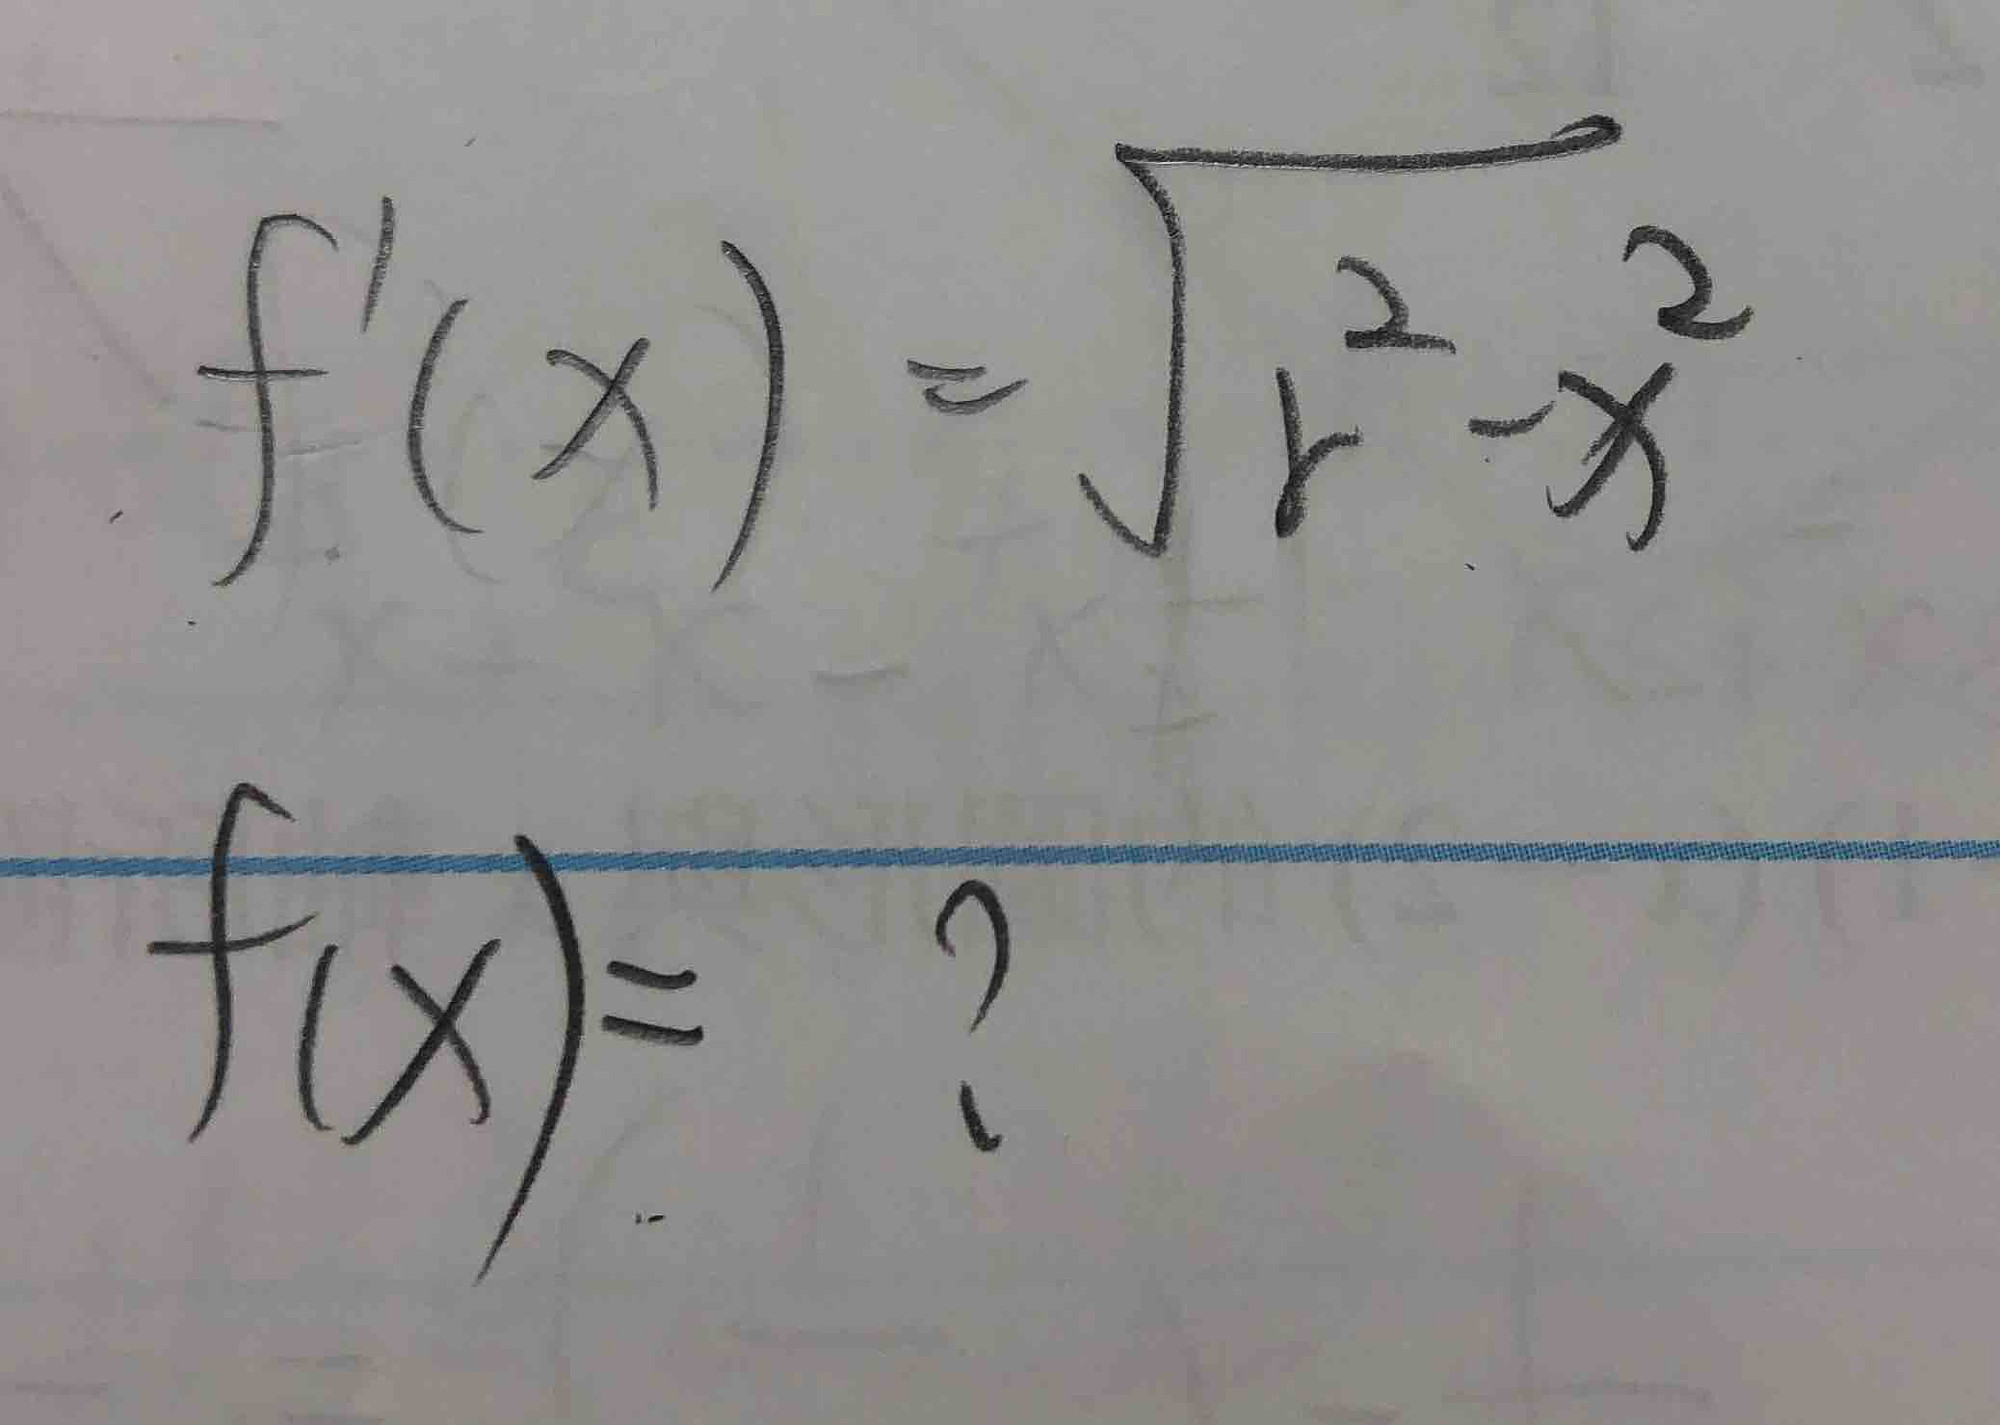 f'(x) = √r²-x²
f(x) = ?